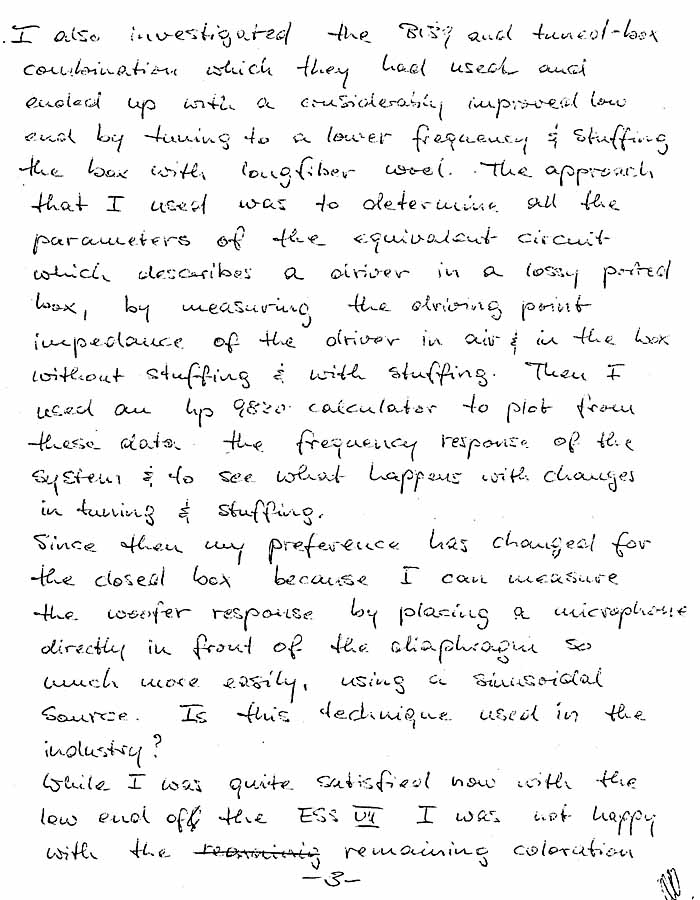 . I also investigated the B139 and tuned-box
combination which they had used and
ended up with a considerably improved low
end by tuning to a lower frequency & stuffing
the box with longfiber wool. The approach
that I used was to determine all the
parameters of the equivalent circuit
which describes a driver in a lossy ported
box, by measuring the driving point
impedance of the driver in air & in the box
without stuffing & with stuffing. Then I
used an hp 9820 calculator to plot from
these data the frequency response of the
system & to see what happens with changes
in tuning & stuffing.
Since then my preference has changed for
the closed box because I can measure
the woofer response by placing a microphone
directly in front of the diaphragm so
much more easily, using a sinusoidal
source. Is this technique used in the
industry?
While I was quite satisfied now with the
low end off the ESS VII I was not happy
with the remaining coloration
-3-